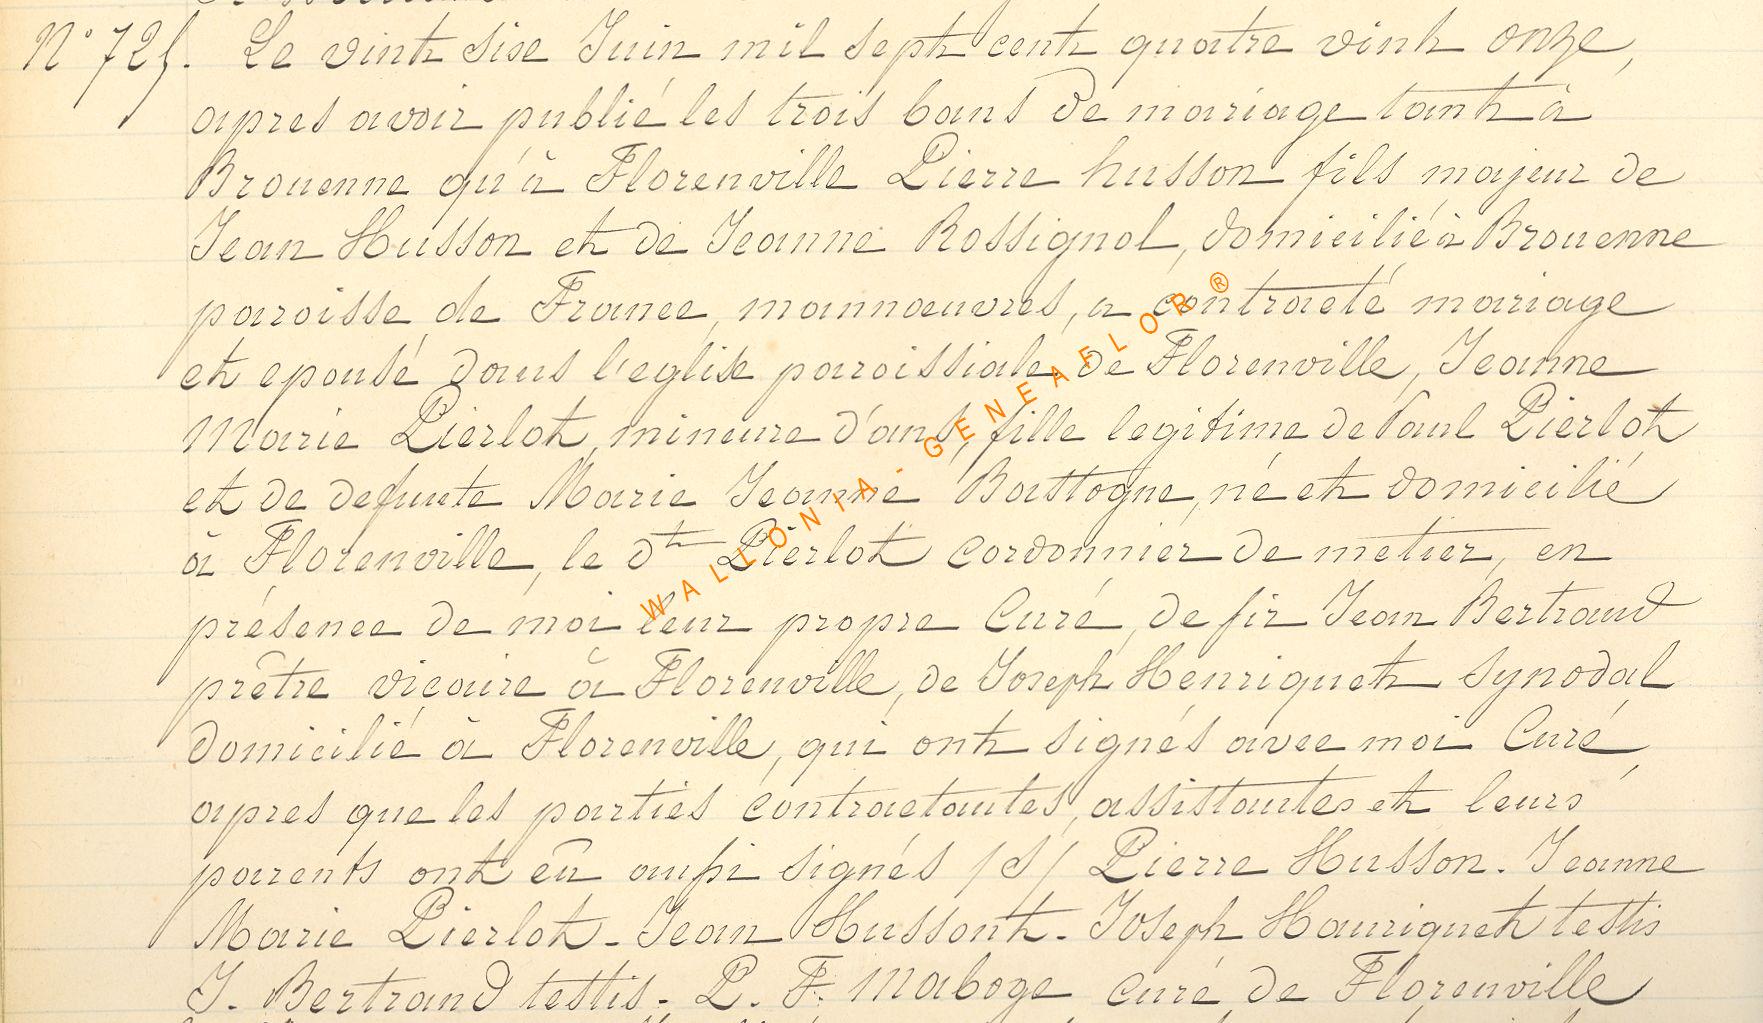 N° 725. Le vint six Juin mil sept cent quatre vint onze,
apres avoir publié les trois bans de mariage tant à
Brouenne qu'à Florenville Pierre husson fils majeur de
Jean Husson et de Jeanne Rossignol, domicilié à Brouenne
paroisse de France, mannœuvres, a contracté mariage
et epousé dans l'eglise paroissiale de Florenville, Jeanne
Marie Pierlot, mineure d'ans, fille legitime de Paul Pierlot
et de defunte Marie Jeanne Bastogne, né et domicilié
à Florenville, le dt Pierlot cordonnier de metier, en
présence de moi leur propre Curé, de sir Jean Bertrand
prêtre vicaire à Florenville, de Joseph Henriquet synodal
domicilié à Florenville, qui ont signés avec moi Curé
apres que les parties contractantes, assistantes et leurs
parents ont eû aussi signés /S/ Pierre Husson. Jeanne
Marie Pierlot - Jean Hussont - Joseph Hanriquet testis
J. Bertrand testis - P. F. Maboge curé de Florenville
WALLONIA - GENEAFLOR®